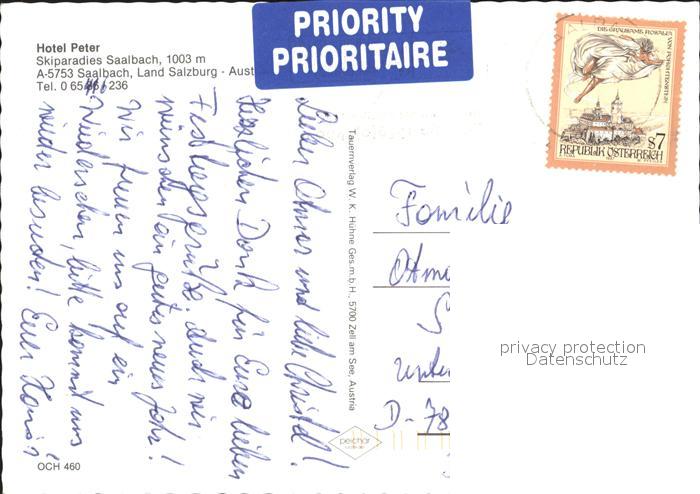 Hotel Peter
Skiparadies Saalbach, 1003 m
A-5753 Saalbach, Land Salzburg - Aust
Tel. 0 65 236
PRIORITY
PRIORITAIRE
DIE GRAUSAME ROSALIA
VON FORCHTENSTEIN
S7
REPUBLIK ÖSTERREICH
Lieber Otmar und liebe Christl!
Herzlichen Dank für Eure lieben
Festtagsgrüße. Auch wir
wünschen ein gutes neues Jahr!
Wir freuen uns auf ein
Wiedersehen, bitte kommt uns
wieder besuchen! Euer
Tauernverlag W. K. Hühne Ges.m.b.H., 5700 Zell am See, Austria
Familie
Otma
S
Unter
D-78
privacy protection
Datenschutz
pelchar
OCH 460